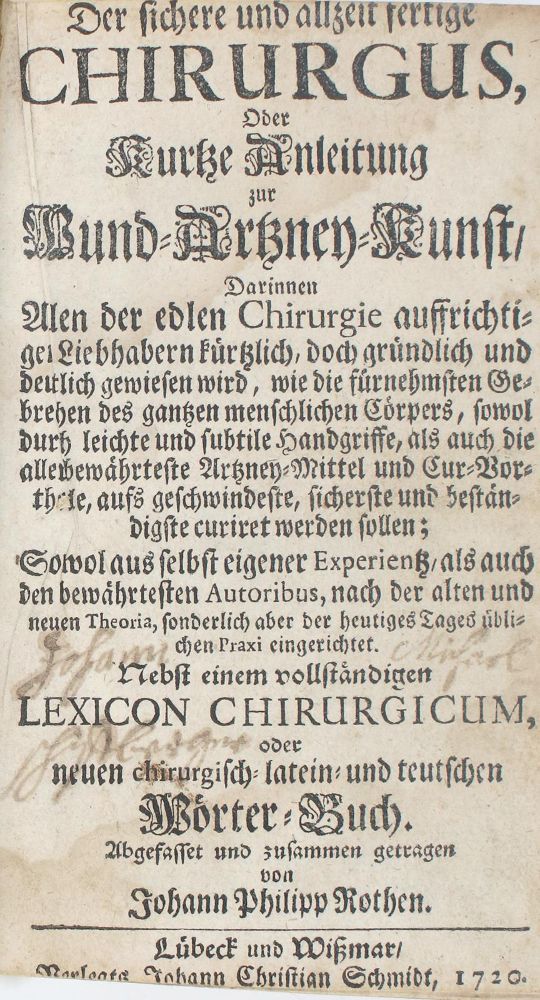 Der sichere und allzeit fertige
CHIRURGUS,
Oder
Kurtze Anleitung
zur
Wund-Artzney-Kunst/
Darinnen
Allen der edlen Chirurgie auffrichti-
gen Liebhabern kürtzlich, doch gründlich und
deutlich gewiesen wird, wie die fürnehmsten Ge-
brechen des gantzen menschlichen Cörpers, sowol
durch leichte und subtile Handgriffe, als auch die
allerbewährteste Artzney-Mittel und Cur-Vor-
theile, aufs geschwindeste, sicherste und bestän-
digste curiret werden sollen;
Sowol aus selbst eigener Experientz, als auch
den bewährtesten Autoribus, nach der alten und
neuen Theoria, sonderlich aber der heutiges Tages übli-
chen Praxi eingerichtet.
Johann Michael
Nebst einem vollständigen
LEXICON CHIRURGICUM,
oder
neuen chirurgisch-latein- und teutschen
Wörter-Buch.
Abgefasset und zusammen getragen
von
Johann Philipp Rothen.
Lübeck und Wißmar/
Verlegts Johann Christian Schmidt, 1720.